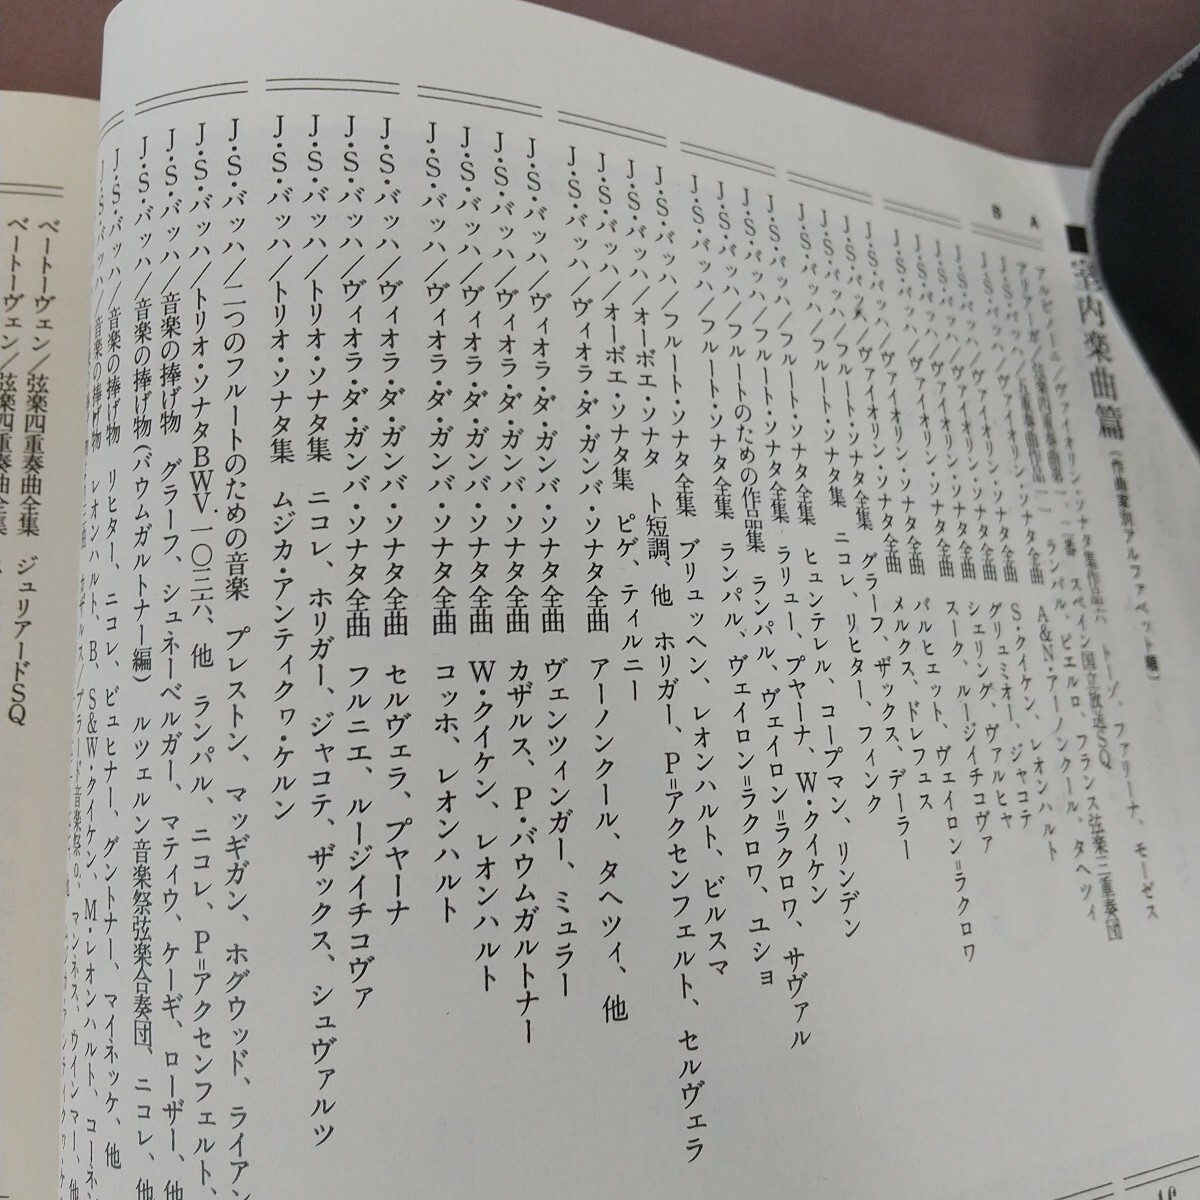 ■室内楽曲篇(作曲家別アルファベット順)
A
アルビノーニ/ヴァイオリン・ソナタ集作品六 トーゾ、ファリーナ、モーゼス
アリアーガ/弦楽四重奏曲第一、二番 スペイン国立放送SQ
B
J・S・バッハ/ヴァイオリン・ソナタ全曲 A&N・アーノンクール、タヘツィ
J・S・バッハ/ヴァイオリン・ソナタ全曲 S・クイケン、レオンハルト
J・S・バッハ/ヴァイオリン・ソナタ全曲 グリュミオー、ジャコテ
J・S・バッハ/ヴァイオリン・ソナタ全曲 シェリング、ヴァルヒャ
J・S・バッハ/ヴァイオリン・ソナタ全曲 スーク、ルージイチコヴァ
J・S・バッハ/ヴァイオリン・ソナタ全曲 バルヒェット、ヴェイロン=ラクロワ
J・S・バッハ/ヴァイオリン・ソナタ全曲 メルクス、ドレフュス
J・S・バッハ/フルート・ソナタ全集 グラーフ、ザックス、デーラー
J・S・バッハ/フルート・ソナタ集 ニコレ、リヒター、フィンク
J・S・バッハ/フルート・ソナタ全集 ヒュンテレル、コープマン、リンデン
J・S・バッハ/フルート・ソナタ全集 ラリュー、プヤーナ、W・クイケン
J・S・バッハ/フルートのための作品集 ランパル、ヴェイロン=ラクロワ、サヴァル
J・S・バッハ/フルート・ソナタ全集 ランパル、ヴェイロン=ラクロワ、ユショ
J・S・バッハ/フルート・ソナタ全集 ブリュッヘン、レオンハルト、ビルスマ
J・S・バッハ/オーボエ・ソナタ ト短調、他 ホリガー、P=アクセンフェルト、セルヴェラ
J・S・バッハ/オーボエ・ソナタ集 ピゲ、ティルニー
J・S・バッハ/ヴィオラ・ダ・ガンバ・ソナタ全曲 アーノンクール、タヘツィ、他
J・S・バッハ/ヴィオラ・ダ・ガンバ・ソナタ全曲 ヴェンツィンガー、ミュラー
J・S・バッハ/ヴィオラ・ダ・ガンバ・ソナタ全曲 カザルス、P・バウムガルトナー
J・S・バッハ/ヴィオラ・ダ・ガンバ・ソナタ全曲 W・クイケン、レオンハルト
J・S・バッハ/ヴィオラ・ダ・ガンバ・ソナタ全曲 コッホ、レオンハルト
J・S・バッハ/ヴィオラ・ダ・ガンバ・ソナタ全曲 セルヴェラ、プヤーナ
J・S・バッハ/ヴィオラ・ダ・ガンバ・ソナタ全曲 フルニエ、ルージイチコヴァ
J・S・バッハ/トリオ・ソナタ集 ニコレ、ホリガー、ジャコテ、ザックス、シュヴァルツ
J・S・バッハ/トリオ・ソナタ集 ムジカ・アンティクヮ・ケルン
J・S・バッハ/二つのフルートのための音楽 プレストン、マッギガン、ホグウッド、ライアン
J・S・バッハ/トリオ・ソナタBWV.一〇三六、他 ランパル、ニコレ、P=アクセンフェルト、
J・S・バッハ/音楽の捧げ物 グラーフ、シュネーベルガー、マティウ、ケーギ、ローザー、他
J・S・バッハ/音楽の捧げ物(バウムガルトナー編) ルツェルン音楽祭弦楽合奏団、ニコレ、他
J・S・バッハ/音楽の捧げ物 リヒター、ニコレ、ビュヒナー、グントナー、マイネッケ、他
J・S・バッハ/音楽の捧げ物 レオンハルト、B、S&W・クイケン、M・レオンハルト、コーネン
ベートーヴェン/弦楽四重奏曲全集 ジュリアードSQ
ベートーヴェン/弦楽四重奏曲全集